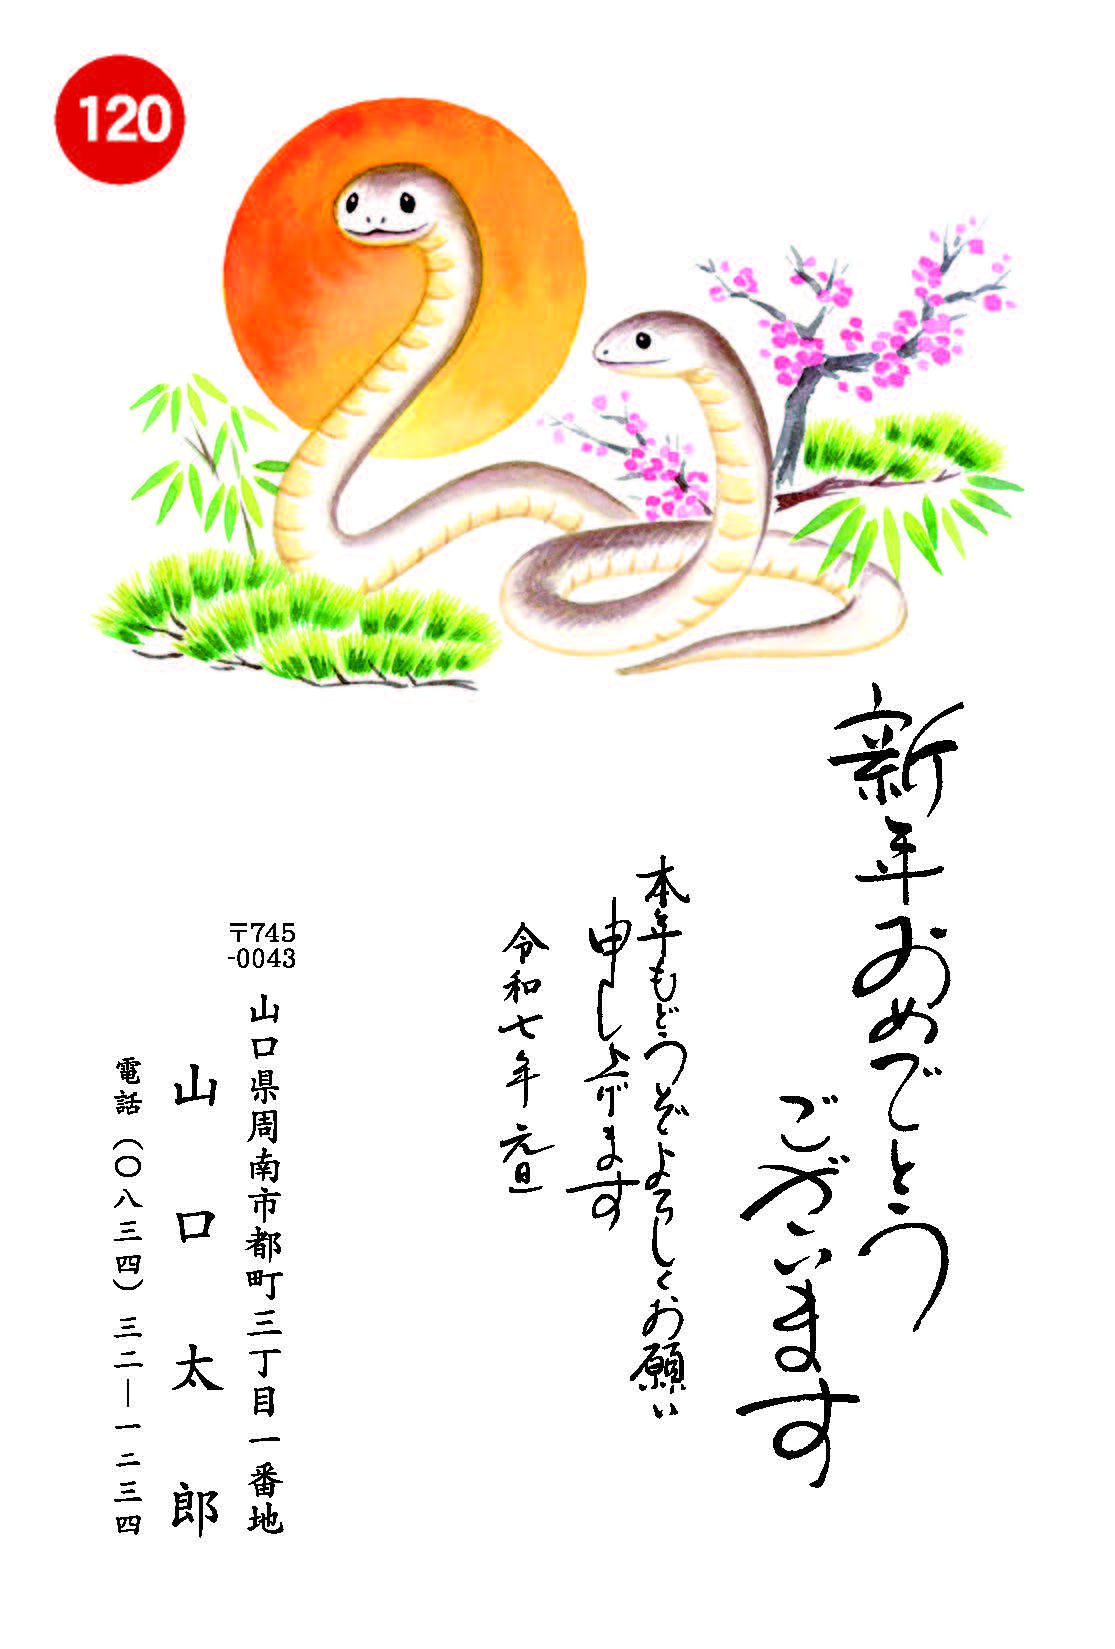 120
新年おめでとう
ございます
本年もどうぞよろしくお願い
申し上げます
令和七年 元旦
〒745
-0043
山口県周南市都町三丁目一番地
山口太郎
電話（〇八三四）三二―一二三四